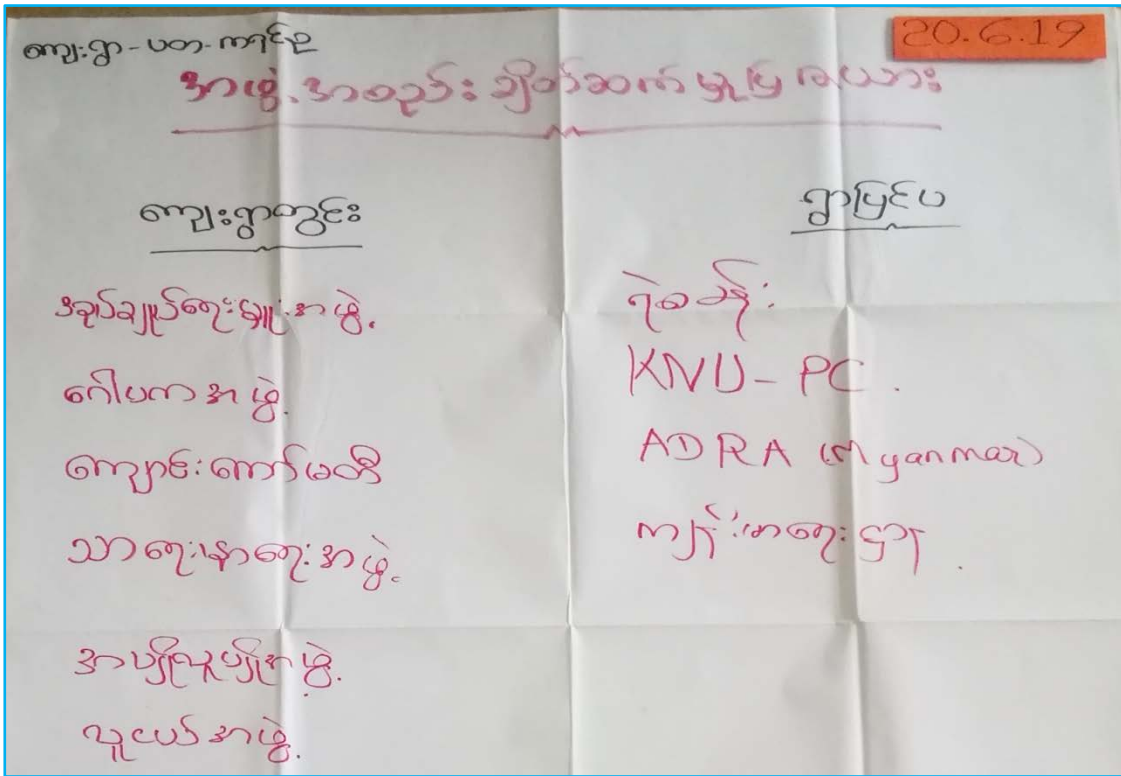 ကျေးရွာ - ပတ - ကရင်ဥ
20.6.19
အဖွဲ့အစည်းချိတ်ဆက်မှုပြဇယား
ကျေးရွာတွင်း
အုပ်ချုပ်ရေးမှူးအဖွဲ့.
ဂေါပကအဖွဲ့.
ကျောင်းကော်မတီ
သာရေးနာရေးအဖွဲ့.
အပျိုလူပျိုအဖွဲ့.
လူငယ်အဖွဲ့.
ရွာပြင်ပ
ရဲစခန်း
KNU - PC.
ADRA (Myanmar)
ကျန်းမာရေးဌာန.